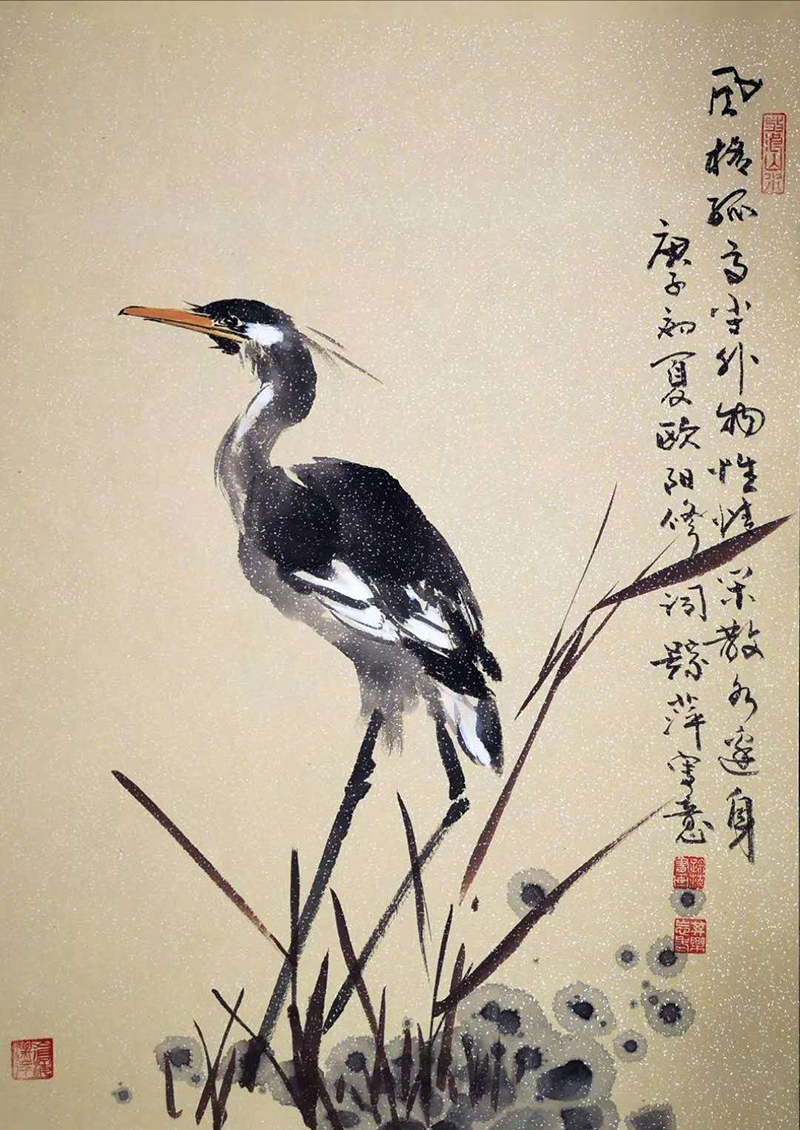 风格孤高尘外物性情闲散水邊身
庚子初夏欧阳修词萍写意